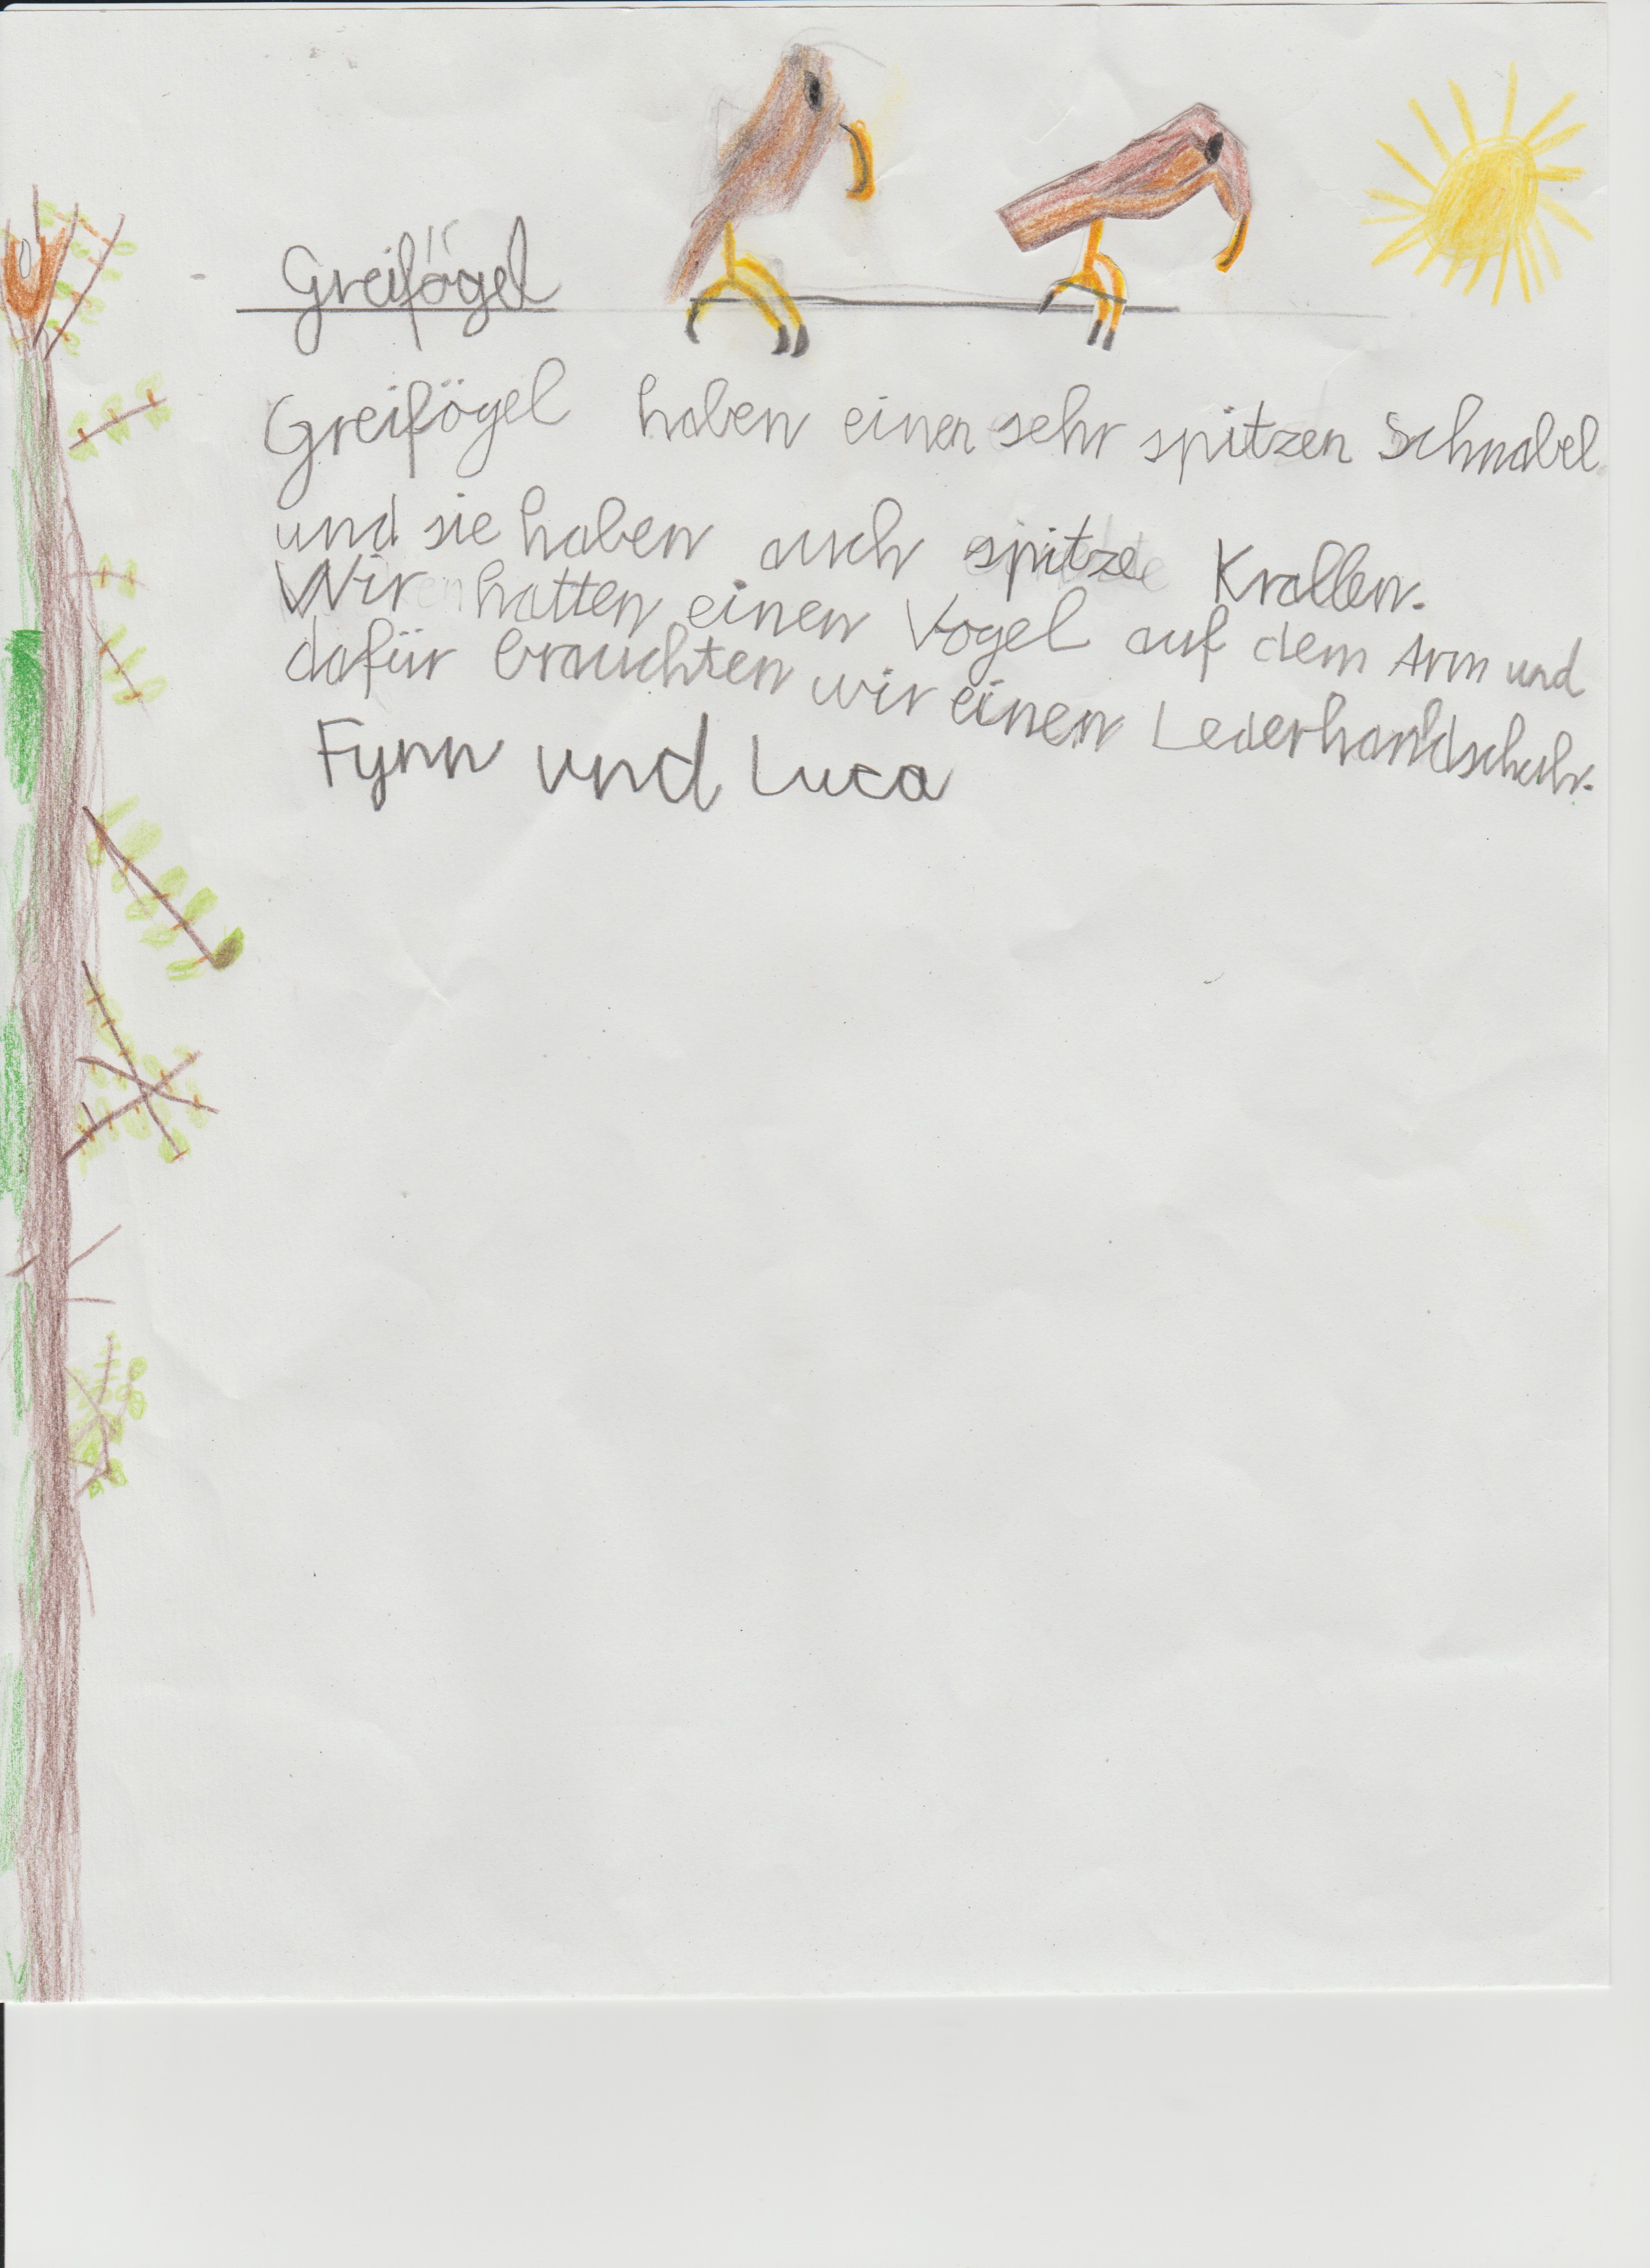 Greifögel
Greifögel haben einen sehr spitzen Schnabel
und sie haben auch spitze Krallen.
Wir hatten einen Vogel auf dem Arm und
dafür brauchten wir einen Lederhandschuh.
Fynn und Luca